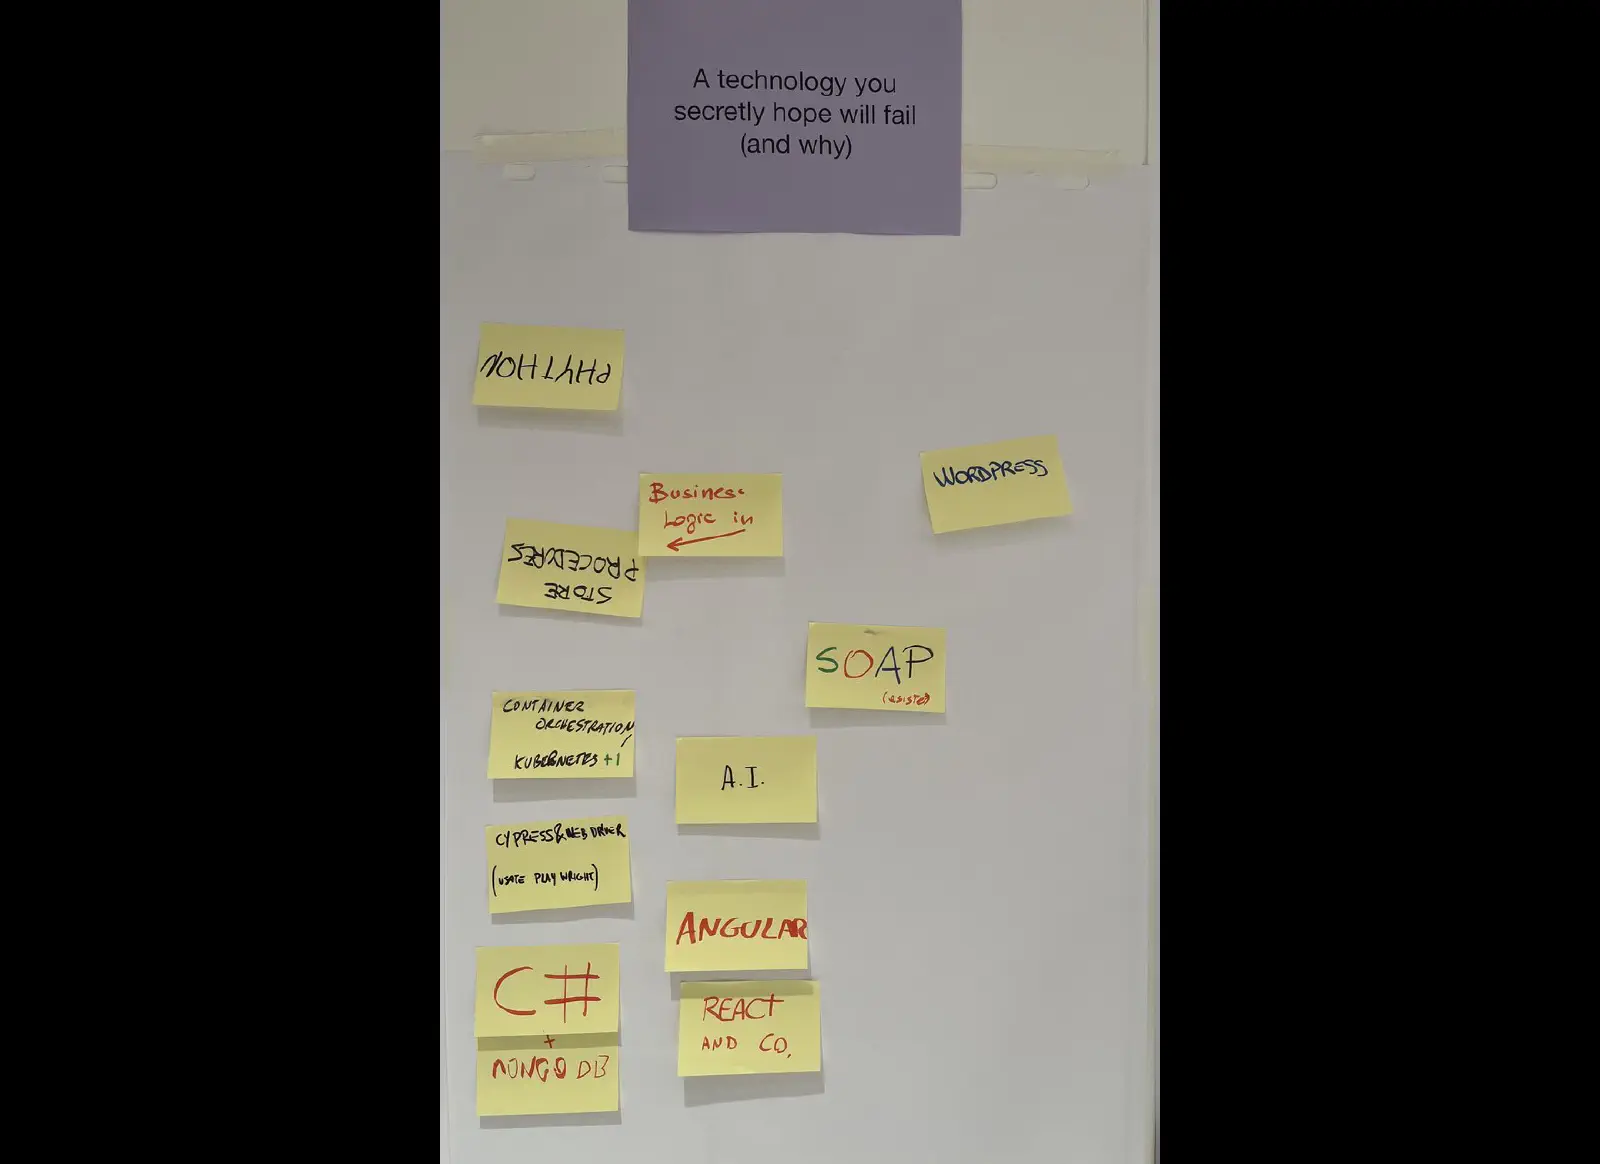 A technology you
secretly hope will fail
(and why)
PHYTHON
WORDPRESS
Business
Logic in
STORE
PROCEDURES
SOAP
CONTAINER
ORCHESTRATION/
KUBERNETES +1
A.I.
CYPRESS&WEBDRIVER
(USATE PLAYWRIGHT)
ANGULAR
C#
+
MONGO DB
REACT
AND CO.